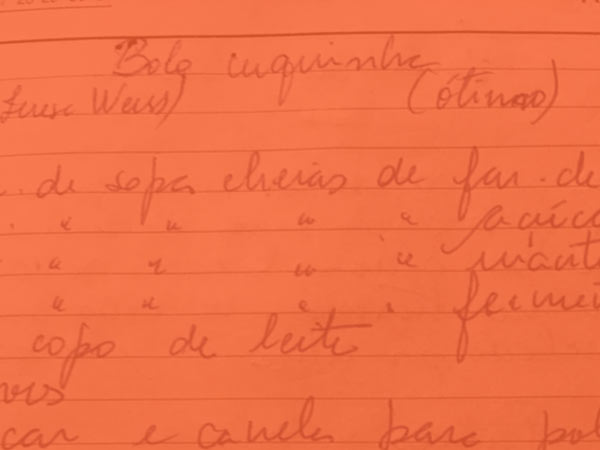 Bolo cuquinha
Weiss) (ótimo)
. de sopa cheias de far. de
" " " " açúc
" " " " mant
" " " " fermen
copo de leite
car e canela para pol